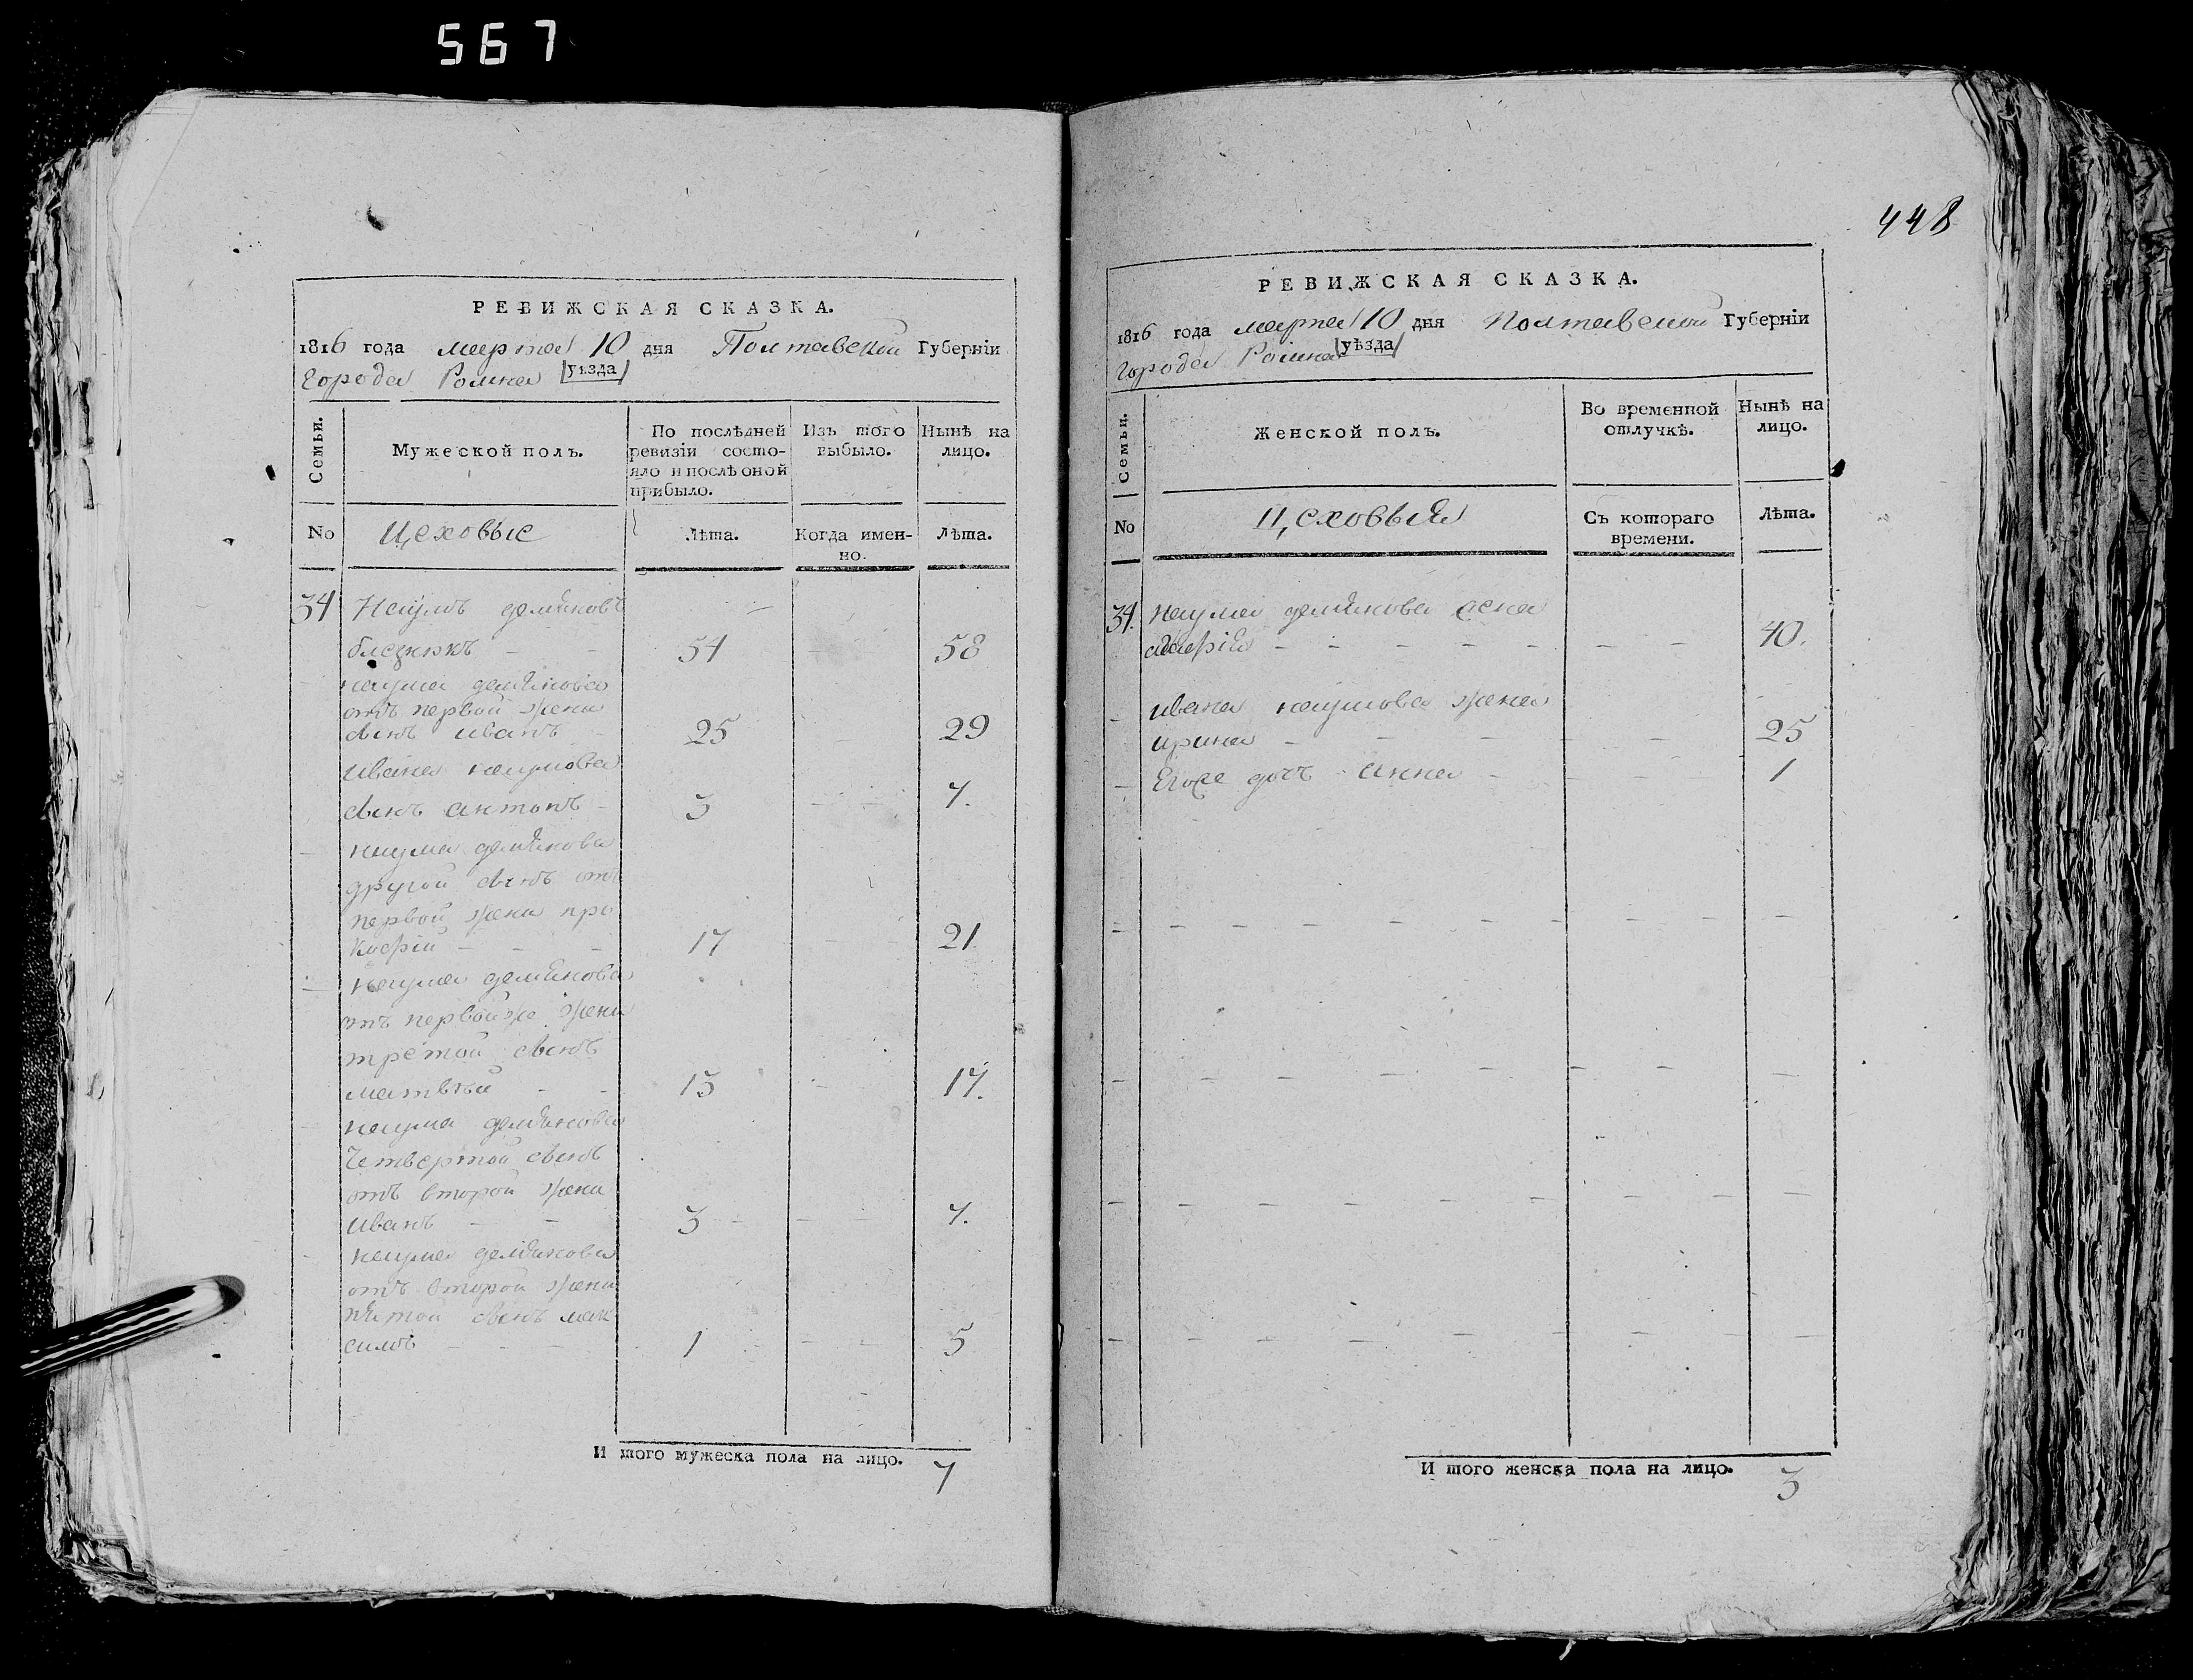 567
РЕВИЖСКАЯ СКАЗКА.
1816 года марта 10 дня Полтавской Губерніи
города Ромна уѣзда
Семьи.
Мужеской полъ.
По послѣдней ревизіи состо-
яло и послѣ оной
прибыло.
Изъ того
выбыло.
Нынѣ на
лицо.
No
Цеховые
Лѣта.
Когда имен-
но.
Лѣта.
34 Наумъ демяновъ
54 58
наума демянова
отъ первой жени
синъ иванъ 25 29
ивана наумова
синъ антонъ 3 7.
наума демянова
другой синъ отъ
первой жени про
кофій 17 21
наума демянова
отъ первойже жени
третой синъ
матвѣй 13 17.
наума демянова
четвертой синъ
отъ второй жени
иванъ 3 7.
наума демянова
отъ второй жени
пятой синъ мак
симъ 1 5
И того мужеска пола на лицо. 7
448
РЕВИЖСКАЯ СКАЗКА.
1816 года марта 10 дня Полтавской Губерніи
города Ромна уѣзда
Семьи.
Женской полъ.
Во временной
отлучкѣ.
Нынѣ на
лицо.
No
Цеховыя
Съ котораго
времени.
Лѣта.
34. наума демянова жена
40.
ивана наумова жена
ирина 25
Егоже дочъ анна 1
И того женска пола на лицо. 3